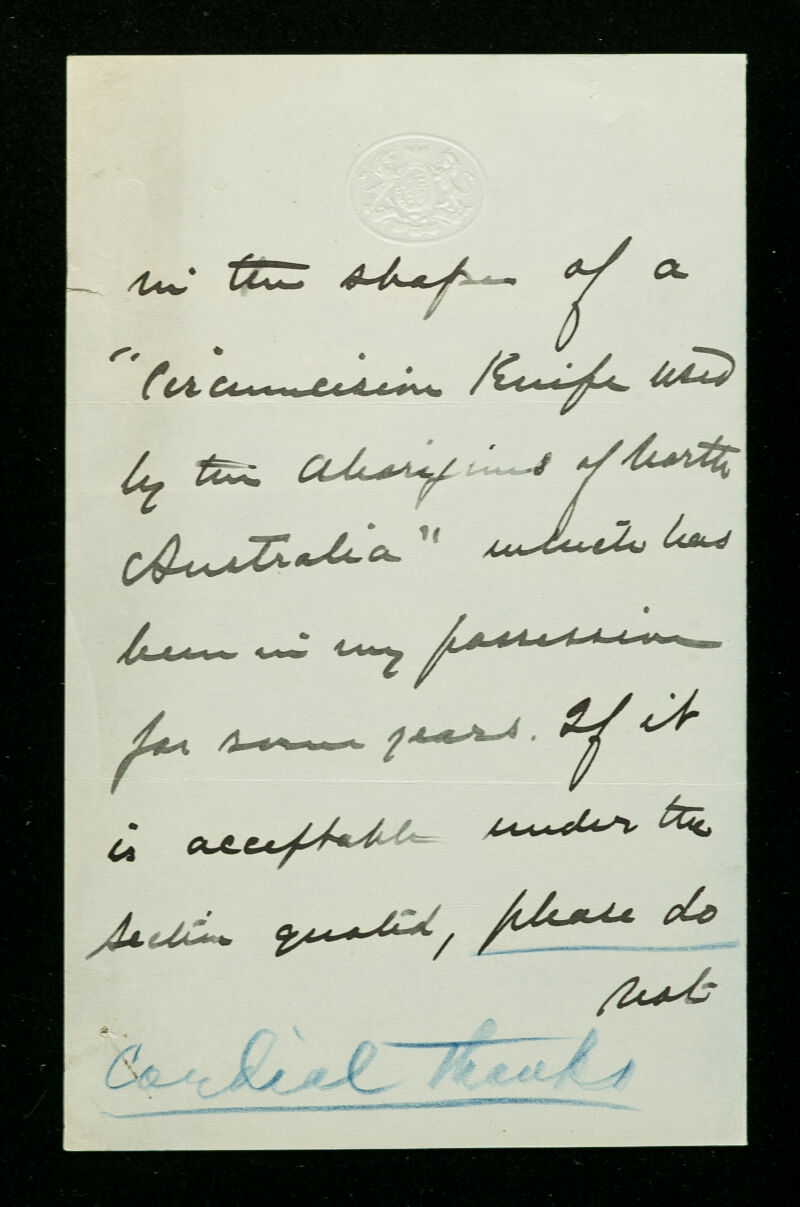 in the shape of a
"Circumcision Knife used
by the Aborigines of North
Australia" which has
been in my possession
for some years. If it
is acceptable under the
section quoted, please do
not
Cordial thanks